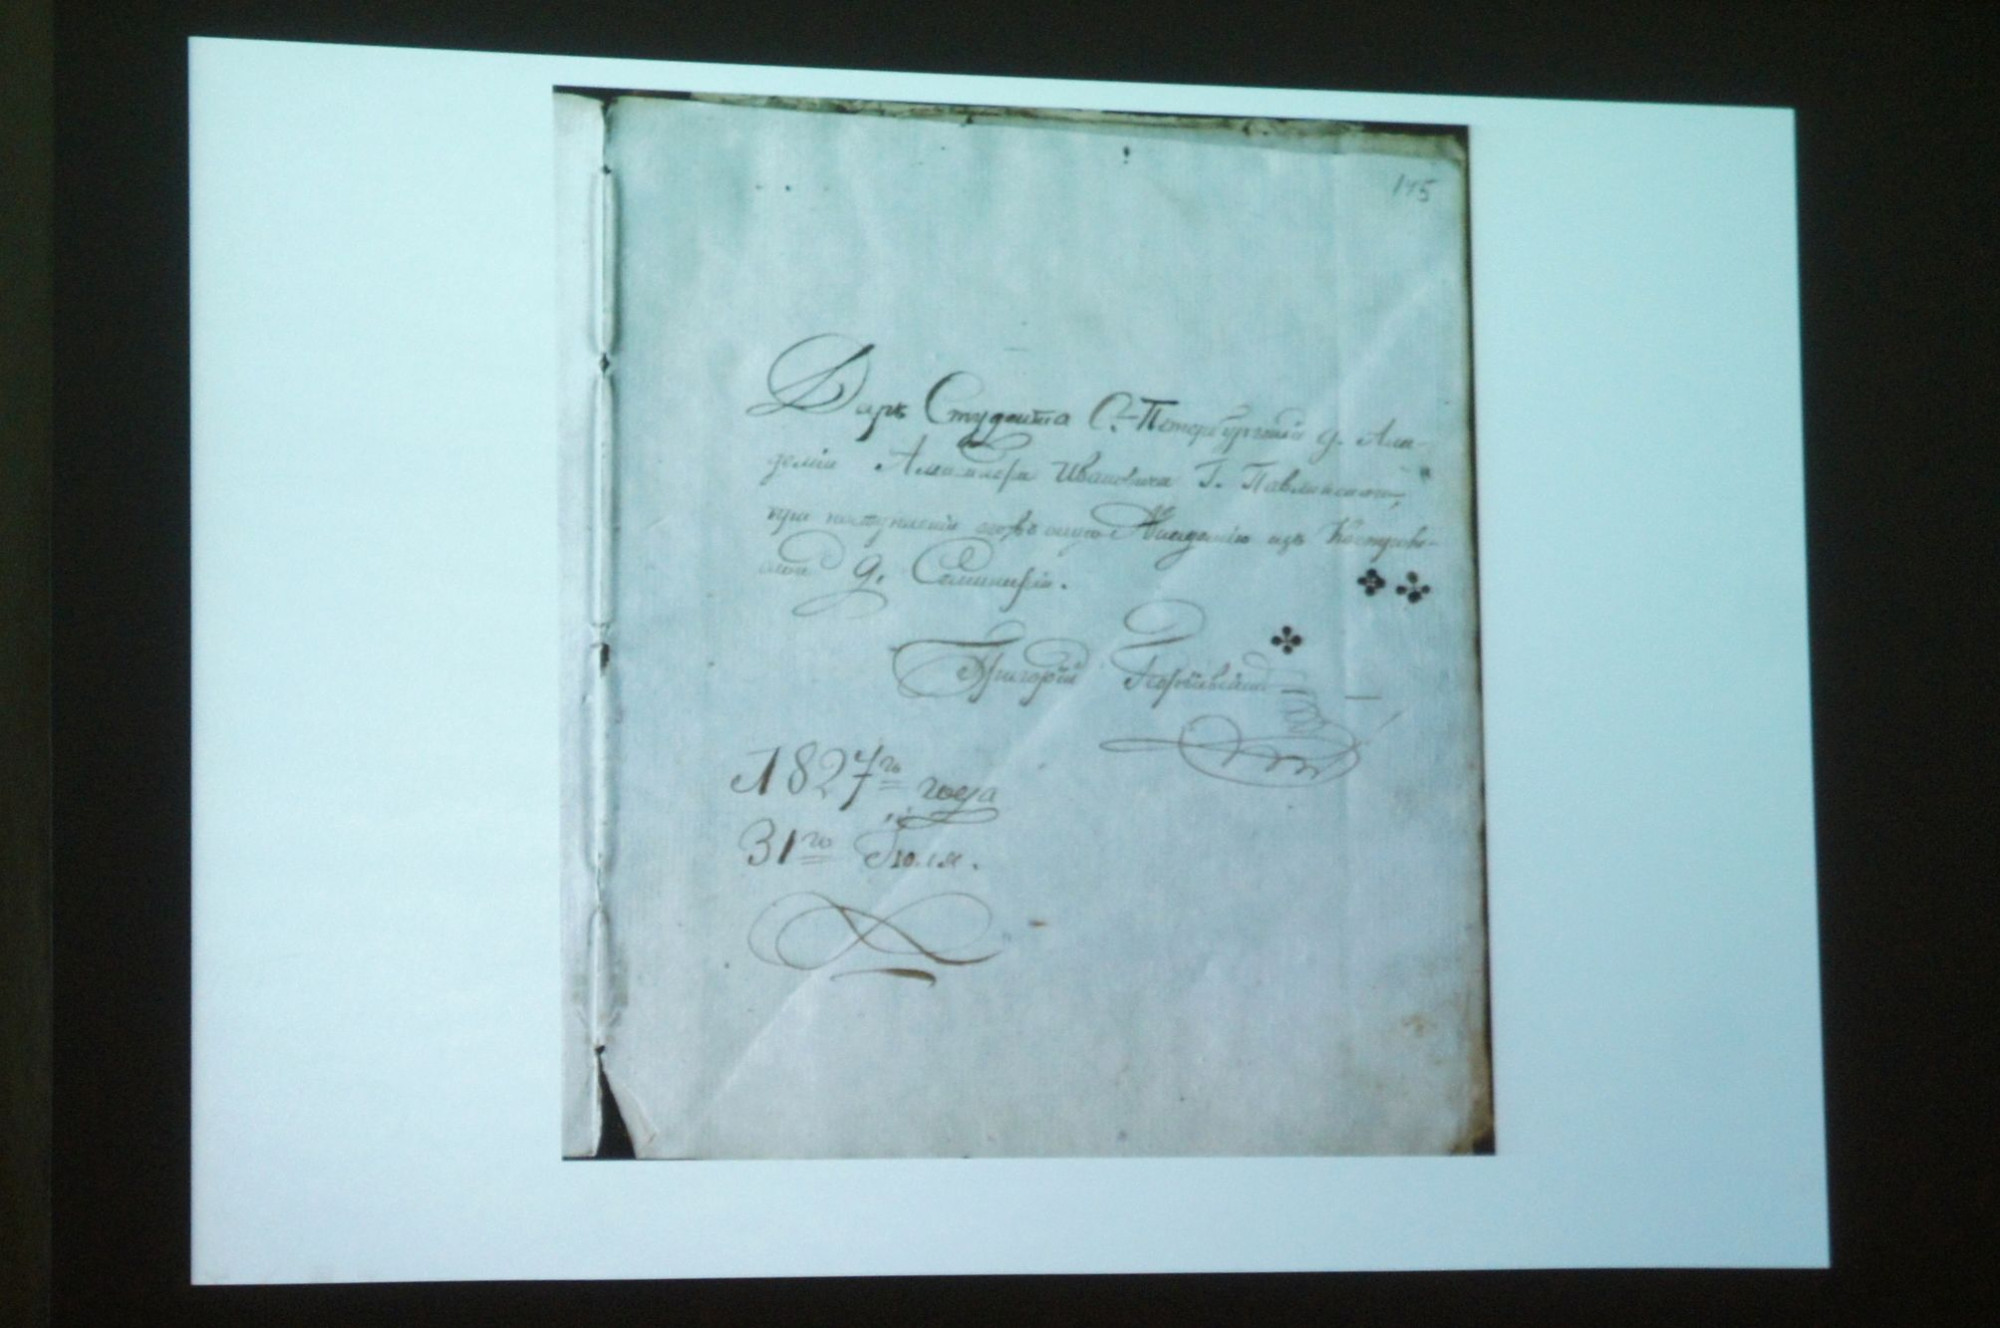 145
Даръ Студента С.-Петербургской д. Ака-
деміи Александра Ивановича Г. Павлинскаго,
при поступленіи въ оную Академію изъ Костромс-
кой д. Семинаріи.
Григорій
1827го года
31го Іюля.